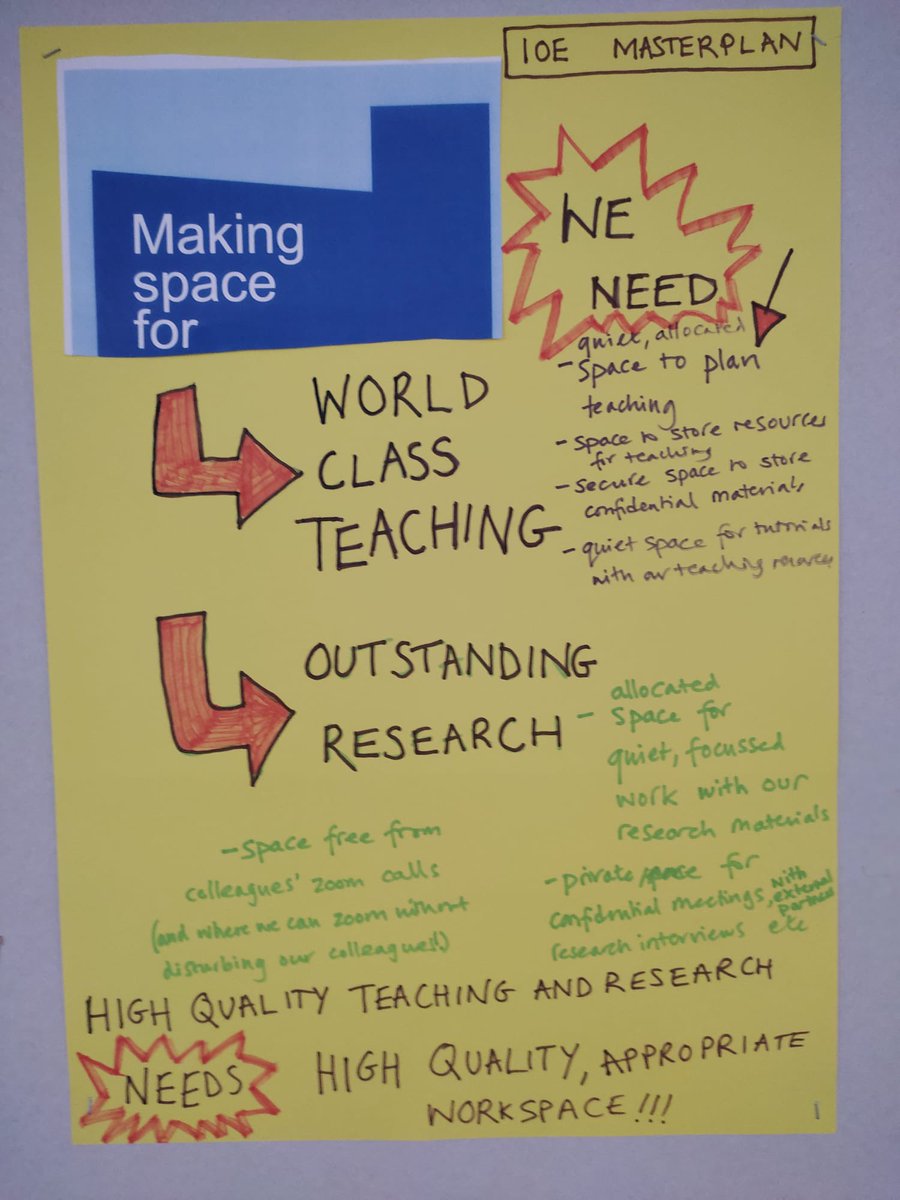 IOE MASTERPLAN
Making
space
for
WE
NEED
WORLD
CLASS
TEACHING
quiet, allocated
- Space to plan
teaching
- space to store resources
for teaching
- secure space to store
confidential materials
- quiet space for tutorials
with our teaching resources
OUTSTANDING
RESEARCH
allocated
- Space for
quiet, focussed
work with our
research materials
- private space for
confidential meetings, with external partners
research interviews etc
- Space free from
colleagues' zoom calls
(and where we can zoom without
disturbing our colleagues!)
HIGH QUALITY TEACHING AND RESEARCH
NEEDS
HIGH QUALITY, APPROPRIATE
WORKSPACE!!!